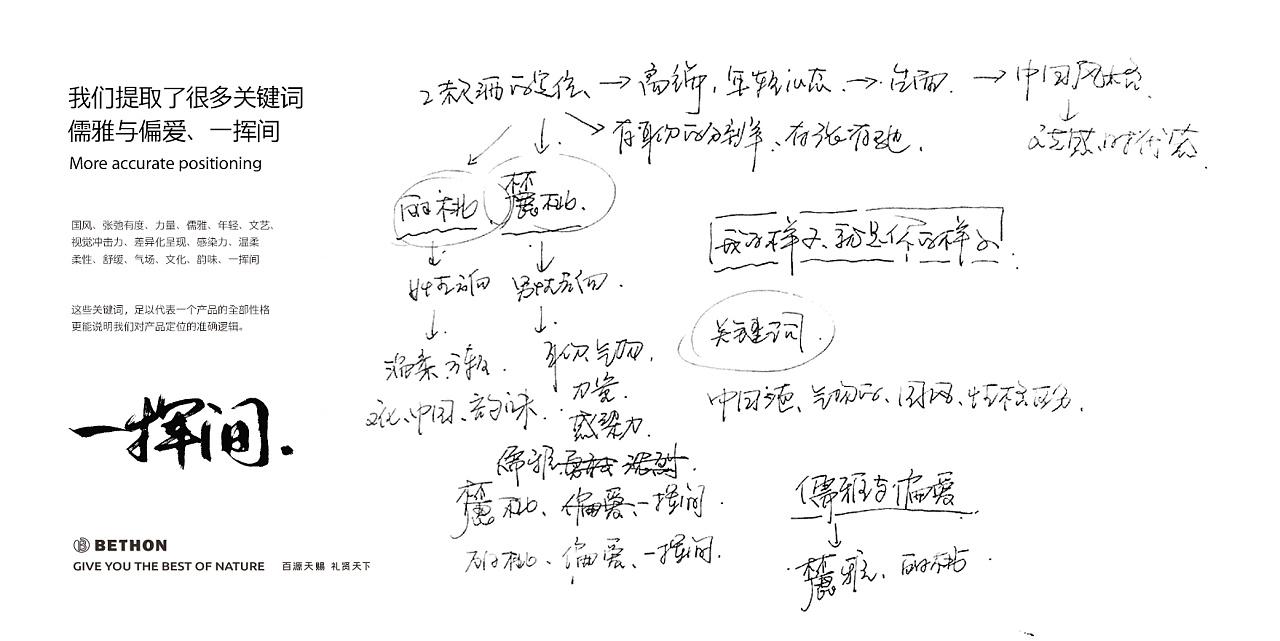 我们提取了很多关键词
儒雅与偏爱、一挥间
More accurate positioning
国风、张弛有度、力量、儒雅、年轻、文艺、
视觉冲击力、差异化呈现、感染力、温柔
柔性、舒缓、气场、文化、韵味、一挥间
这些关键词，足以代表一个产品的全部性格
更能说明我们对产品定位的准确逻辑。
一挥间.
BETHON
GIVE YOU THE BEST OF NATURE 百源天赐 礼贤天下
2款酒的定位、→高端,年轻心态.→ → 中国风
有身份的 、有张有弛.
女性方向 男性方向.
温柔 身份,气场,
文化、中国、韵味. 力量.
感染力.
儒雅
偏爱、一挥间.
偏爱、一挥间.
我的样子、就是个的样子
关键词.
中国 、气场的、国风、性格
儒雅与偏爱